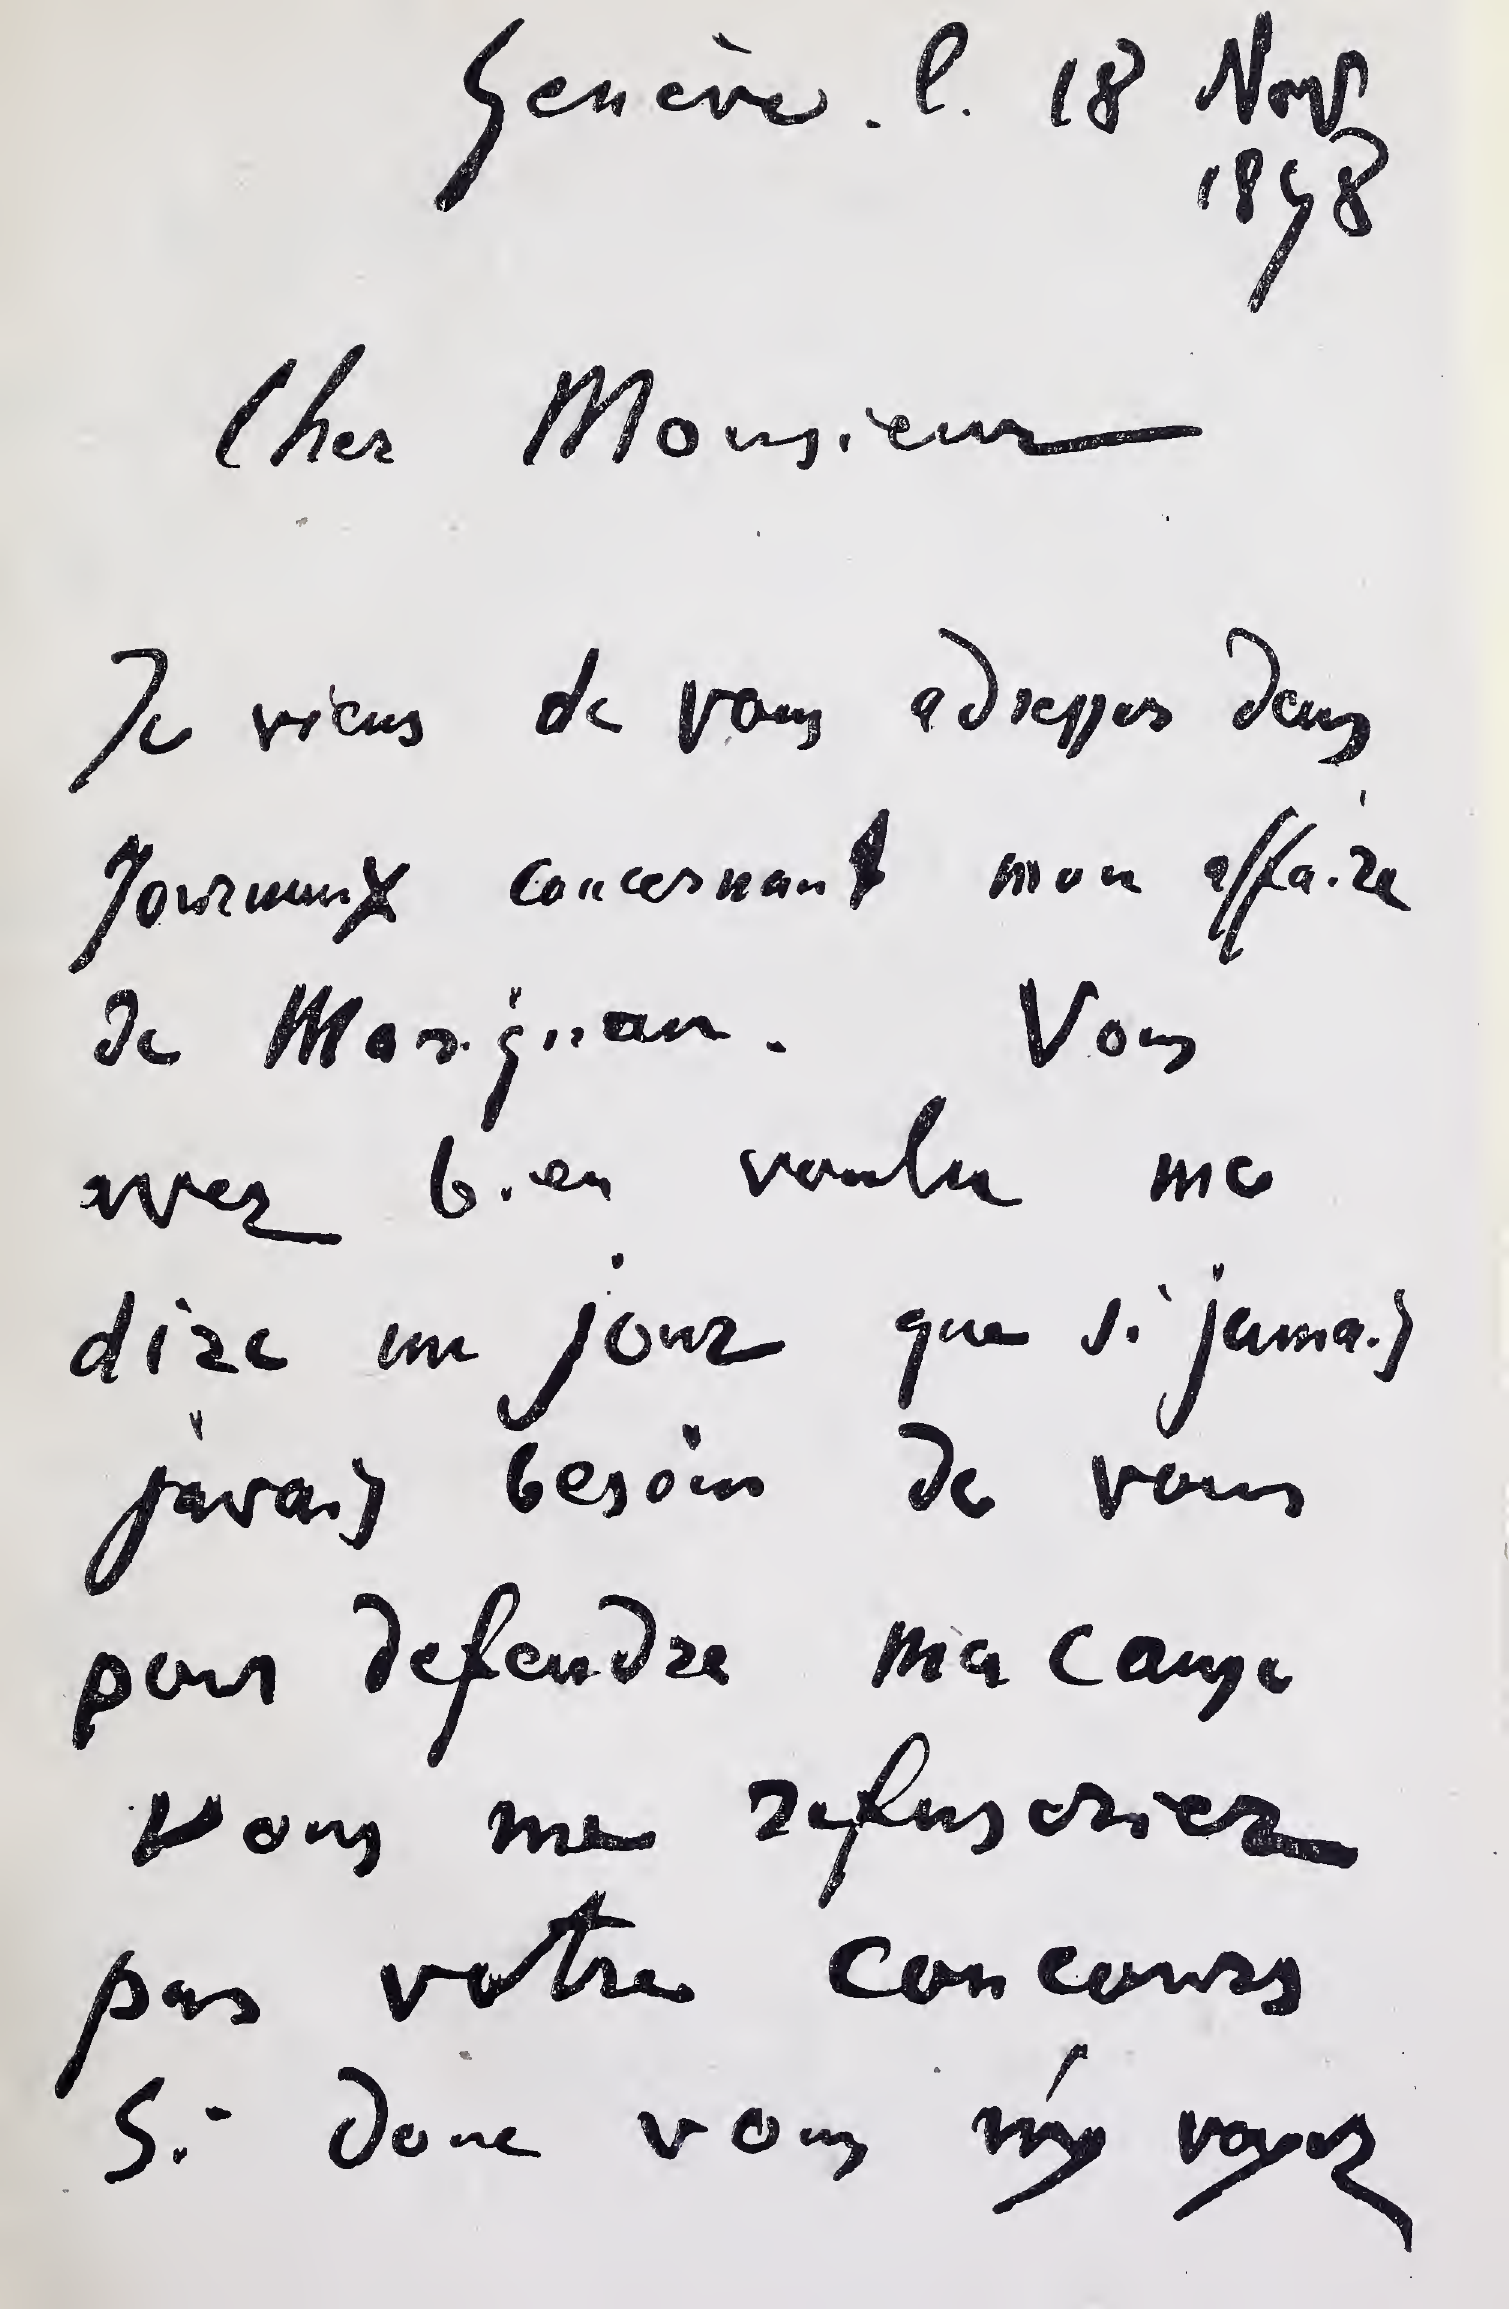 Genève. l. 18 Nov
1898
Cher Monsieur
Je viens de vous adresser deux
journaux concernant mon affaire
de Marignan. Vous
avez bien voulu me
dire un jour que si jamais
j'avais besoin de vous
pour defendre ma cause
vous me refuseriez
pas votre concours
Si donc vous n'y voyez